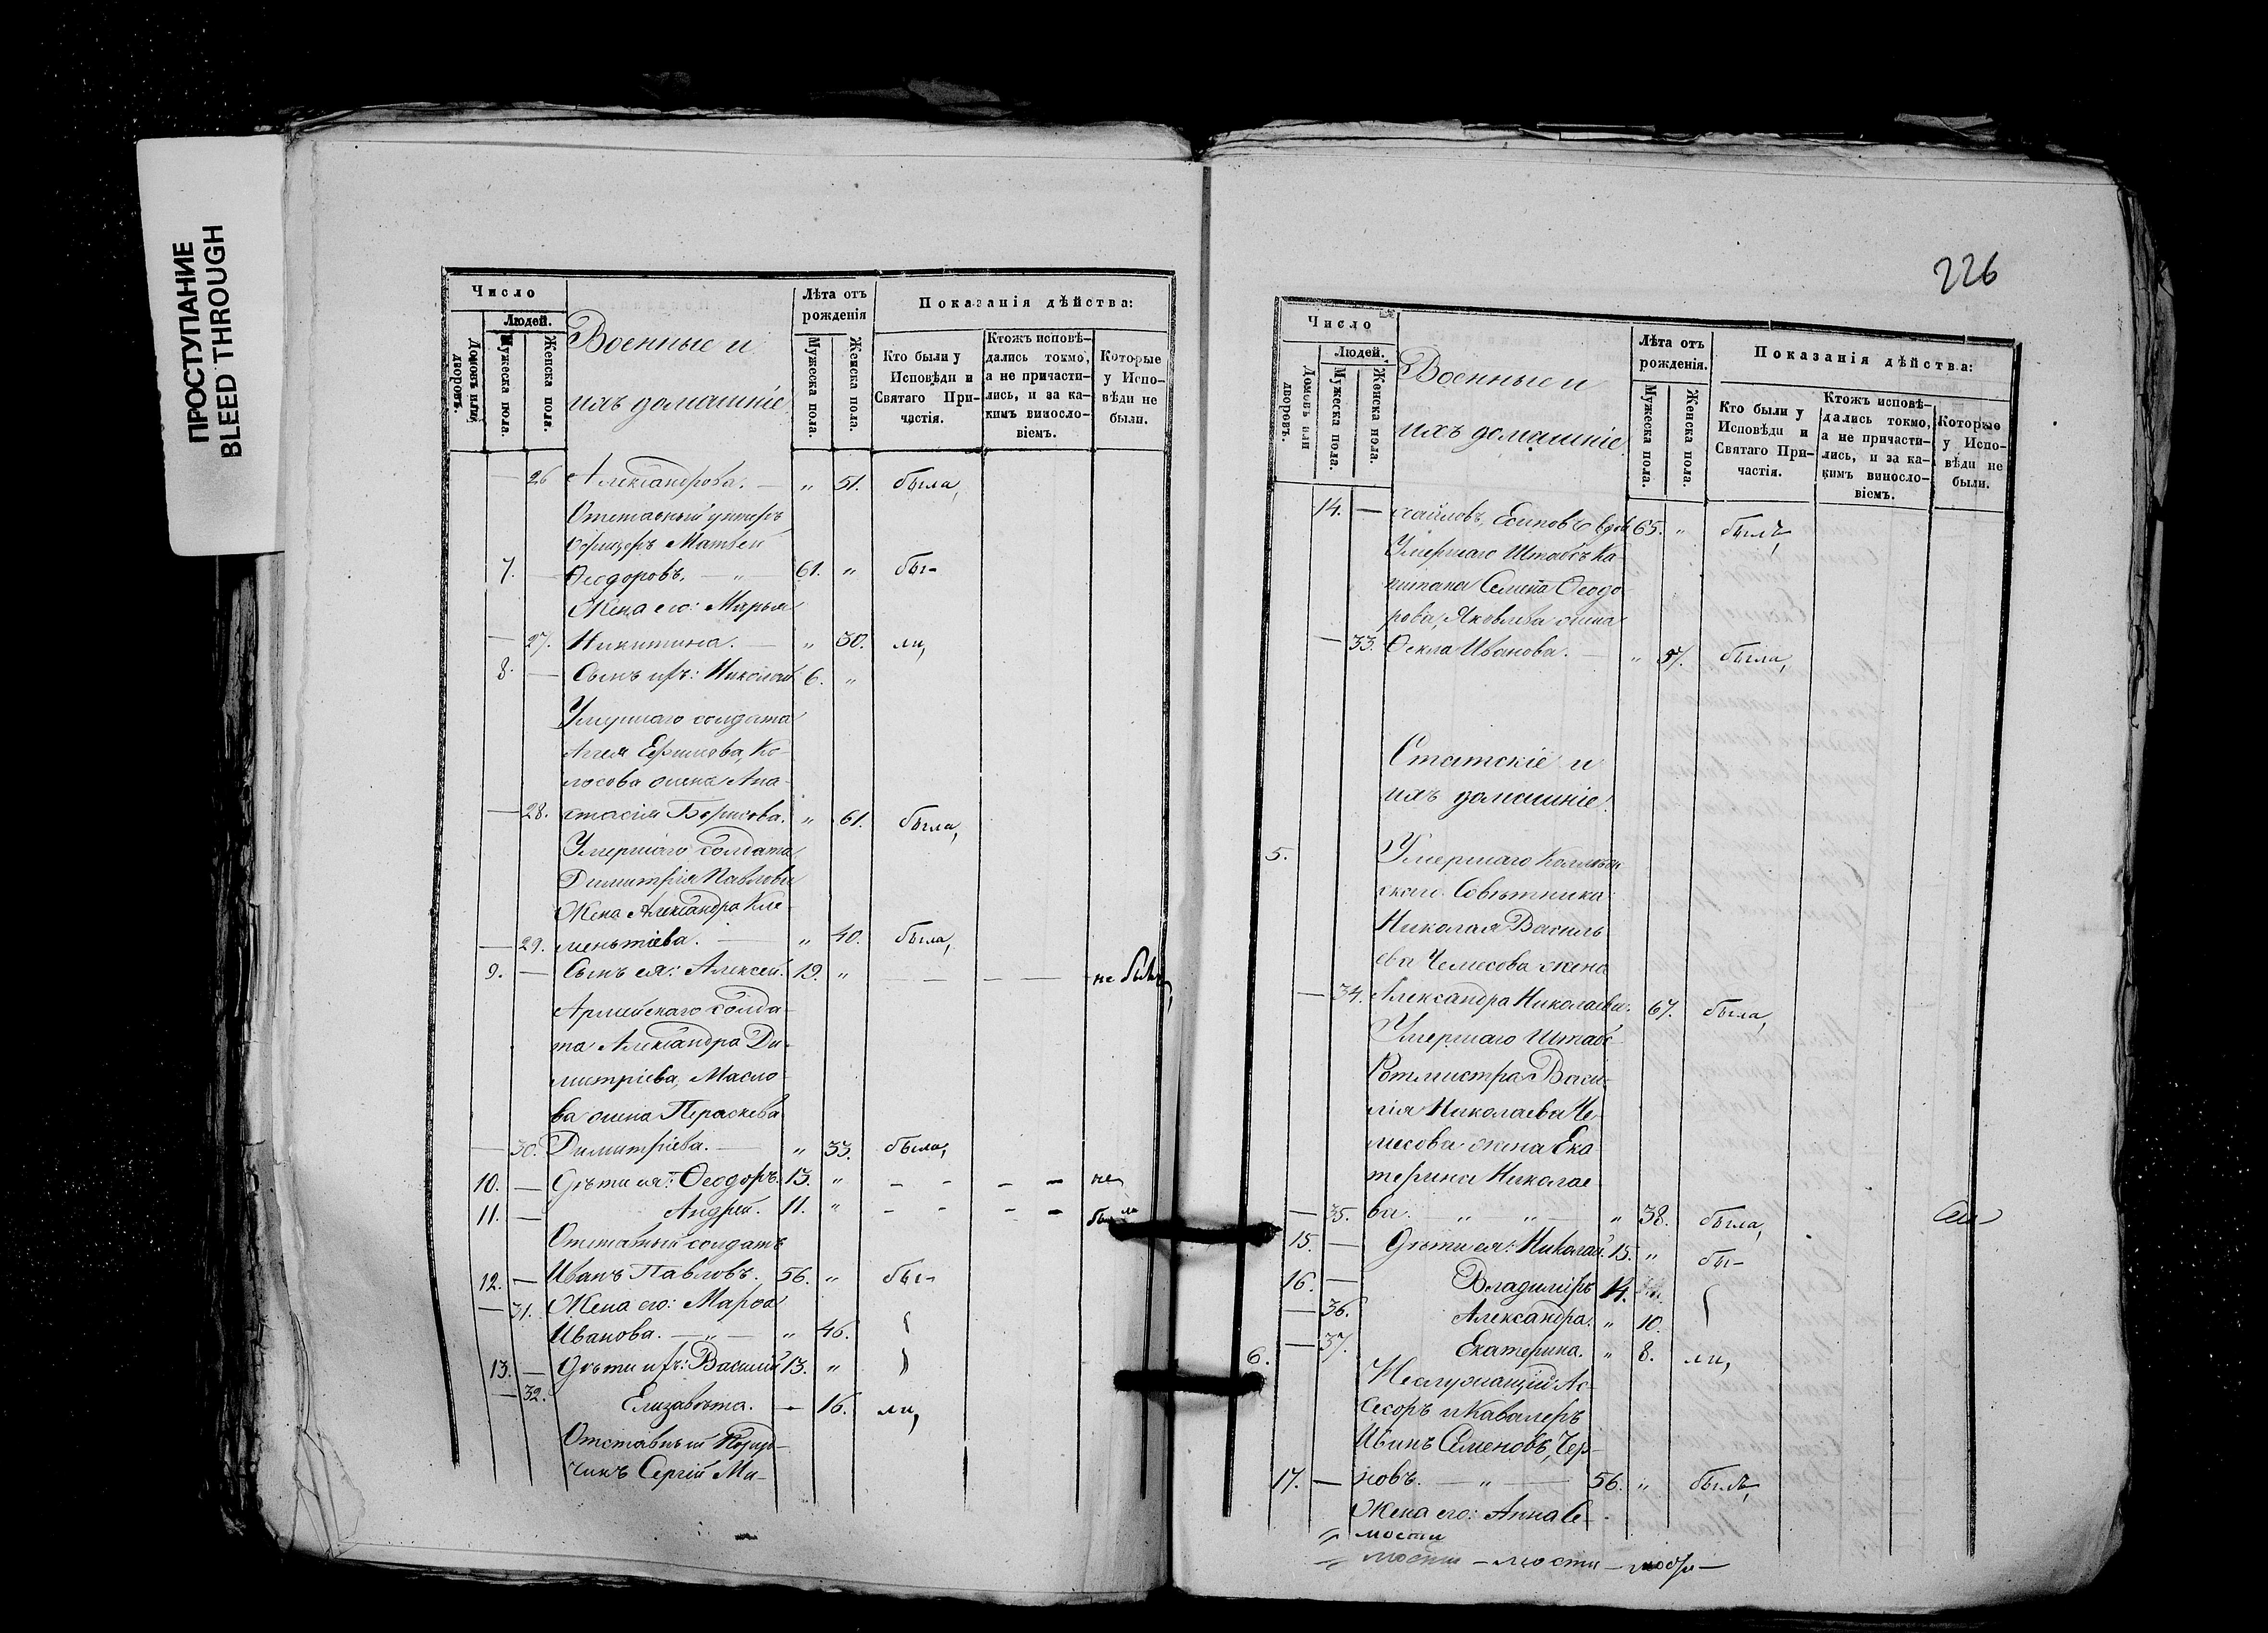 ПРОСТУПАНИЕ
BLEED THROUGH
Число
Людей.
Домовъ или дворовъ.
Мужеска пола.
Женска пола.
Военные и
ихъ домашніе.
Лѣта отъ рожденія
Мужеска пола.
Женска пола.
Показанія дѣйства:
Кто были у Исповѣди и Святаго Причастія.
Ктожъ исповѣдались токмо, а не причастились, и за какимъ винословіемъ.
Которые у Исповѣди не были.
— 26 Александрова. — „ 51. была,
Отставный унтеръ
офицеръ Матвей
7. — Ѳеодоровъ. — „ — 61. „ бы-
Жена его: Марья
— 27. Никитина. — „ 50. ли,
8. — Сынъ ихъ: Николай 6. „
Умершаго солдата
Ефимова, Ко-
лосова жена Ана-
— 28. стасія Борисова. „ 61. была,
Умершаго солдата
Димитрія Павлова
Жена Александра Кле-
— 29. ментіева. — „ 40. была,
9. — Сынъ ея: Алексей. 19. „ — — — — не былъ,
Армейскаго солда-
та Александра Ди-
митріева, Масло-
ва жена Параскева
— 30. Димитріева. — „ 33. была,
10. — Дѣти ея: Ѳеодоръ. 13. „ - - - - не
11. — Андрей. 11. „ - - - - были
Отставный солдатъ
12. — Иванъ Павловъ. 56. „ бы-
— 31. Жена его: Марѳа
Иванова. — „ — „ 46.
13. — Дѣти ихъ: Василій 13. „
— 32. Елизавѣта. - 16. ли,
Отставный Пору-
чикъ Сергій Ми-
226
Число
Людей.
Домовъ или дворовъ.
Мужеска пола.
Женска пола.
Военные и
ихъ домашніе.
Лѣта отъ рожденія.
Мужеска пола.
Женска пола.
Показанія дѣйства:
Кто были у Исповѣди и Святаго Причастія.
Ктожъ исповѣдались токмо, а не причастились, и за какимъ винословіемъ.
Которые у Исповѣди не были.
14. — хайловъ, Есиповъ вдовъ 65. „ былъ,
Умершаго Штабсъ Ка
питана Семена Ѳеодо
рова, Яковлева жена
— 33. Ѳекла Иванова. — „ 57. была,
Статскіе и
ихъ домашніе.
5. Умершаго Коллеж
скаго Совѣтника
Николая Василь
ева Чемесова жена
— 34. Александра Николаева. 67. была,
Умершаго Штабс
Ротмистра Васи-
лія Николаева Че-
месова жена Ека
терина Николае
— 35. ва. „ „ „ 38. была,
15. — Дѣти ея: Николай. 15. „ бы-
16. — Владиміръ 14.
— 36. Александра. „ 10.
— 37. Екатерина. „ 8. ли,
6. Неслужащій Ас-
сесоръ и Кавалеръ
Иванъ Семеновъ, Чер-
17. — новъ. — „ — 56. „ былъ,
Жена его: Анна Се-
мости
мости — мости —